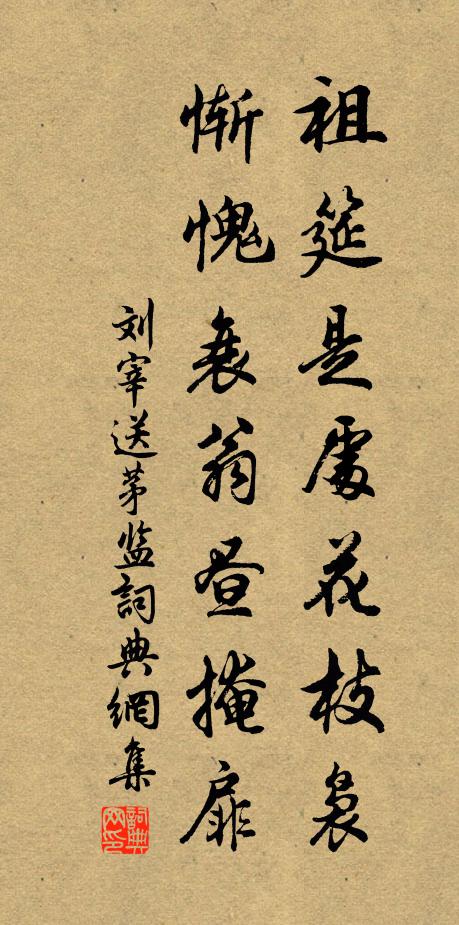 祖筵是處花枝裊
慚愧衰翁昼掩扉
刘宰送茅监詞典網集
詞典網印